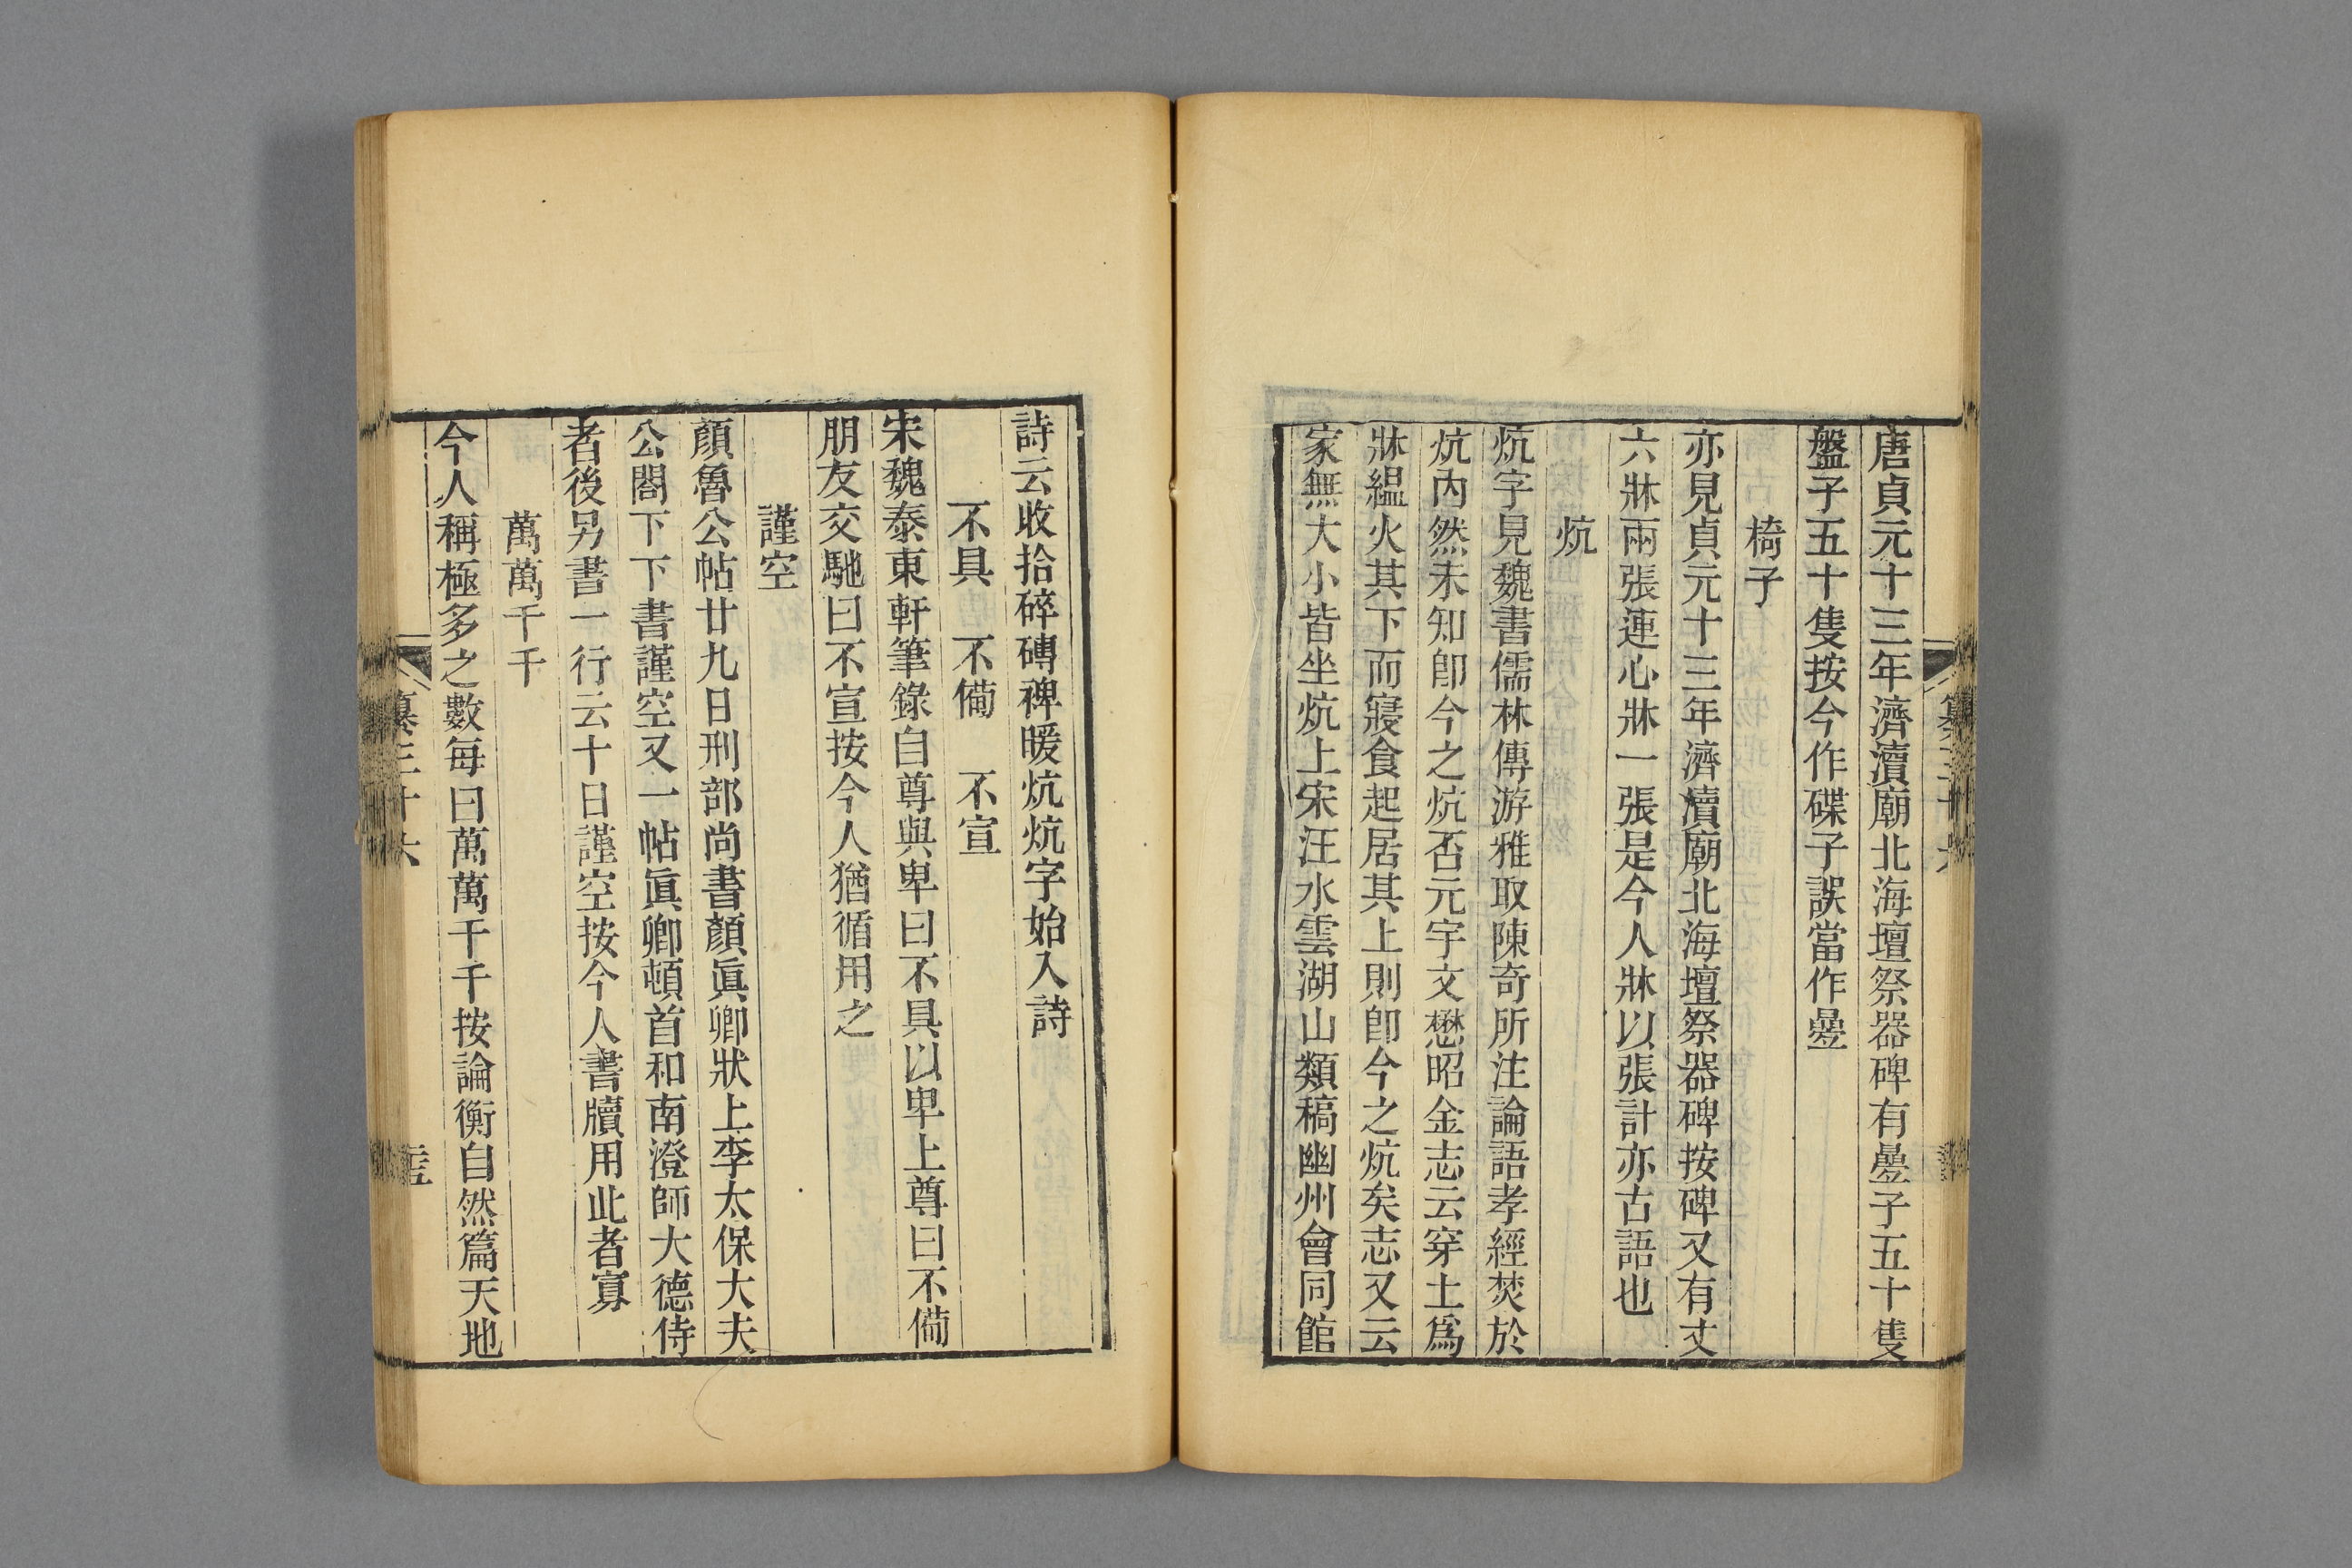 唐貞元十三年濟瀆廟北海壇祭器碑有疊子五十隻
盤子五十隻按今作碟子誤當作疊
椅子
亦見貞元十三年濟瀆廟北海壇祭器碑按碑又有丈
六牀兩張連心牀一張是今人牀以張計亦古語也
炕
炕字見魏書儒林傳游雅取陳奇所注論語孝經焚於
炕內然未知卽今之炕否元宇文懋昭金志云穿土爲
牀緼火其下而寢食起居其上則卽今之炕矣志又云
家無大小皆坐炕上宋汪水雲湖山類稿幽州會同館
詩云收拾碎磚裨暖炕炕字始入詩
不具　不備　不宣
宋魏泰東軒筆錄自尊與卑曰不具以卑上尊曰不備
朋友交馳曰不宣按今人猶循用之
謹空
顏魯公帖廿九日刑部尚書顏眞卿狀上李太保大夫
公閤下下書謹空又一帖眞卿頓首和南澄師大德侍
者後另書一行云十日謹空按今人書牘用此者寡
萬萬千千
今人稱極多之數每曰萬萬千千按論衡自然篇天地